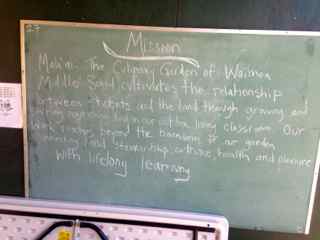 Mission
Mala'ai: The Culinary Garden of Waimea
Middle School cultivates the relationship
between students and the land through growing and
eating together in our outdoor living classroom. Our
work reaches beyond the boundaries of our garden
connecting land stewardship, culture, health, and pleasure
with lifelong learning